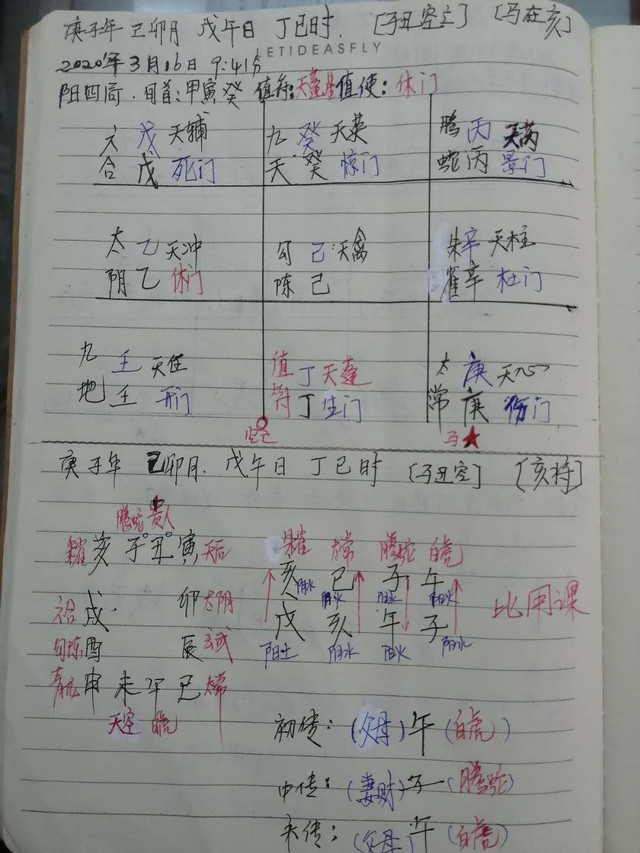 庚子年 己卯月 戊午日 丁巳时. [子丑空亡] [马在亥]
LETIDEASFLY
2020年3月16日 9:41分
阳四局. 旬首:甲寅癸 值符:天蓬星 值使:休门
六 戊 天辅 九 癸 天英 腾 丙 天芮
合 戊 死门 天 癸 惊门 蛇 丙 景门
太 乙 天冲 勾 己 天禽 朱 辛 天柱
阴 乙 休门 陈 己 雀 辛 杜门
九 壬 天任 值 丁 天蓬 太 庚 天心
地 壬 开门 符 丁 生门 常 庚 伤门
空亡 马★
庚子年 己卯月. 戊午日 丁巳时 [子丑空] [亥将]
腾蛇 贵人
朱雀 亥 子 丑 寅 天后 朱雀 太常 腾蛇 白虎
亥 巳 子 午
六合 戌 卯 太阴 戊 亥 午 子 比用课
勾陈 酉 辰 玄武 阳土
青龙 申 未 午 巳 太常
天空 白虎
初传: (父母) 午 (白虎)
中传: (妻财) 子 (腾蛇)
末传: (父母) 午 (白虎)